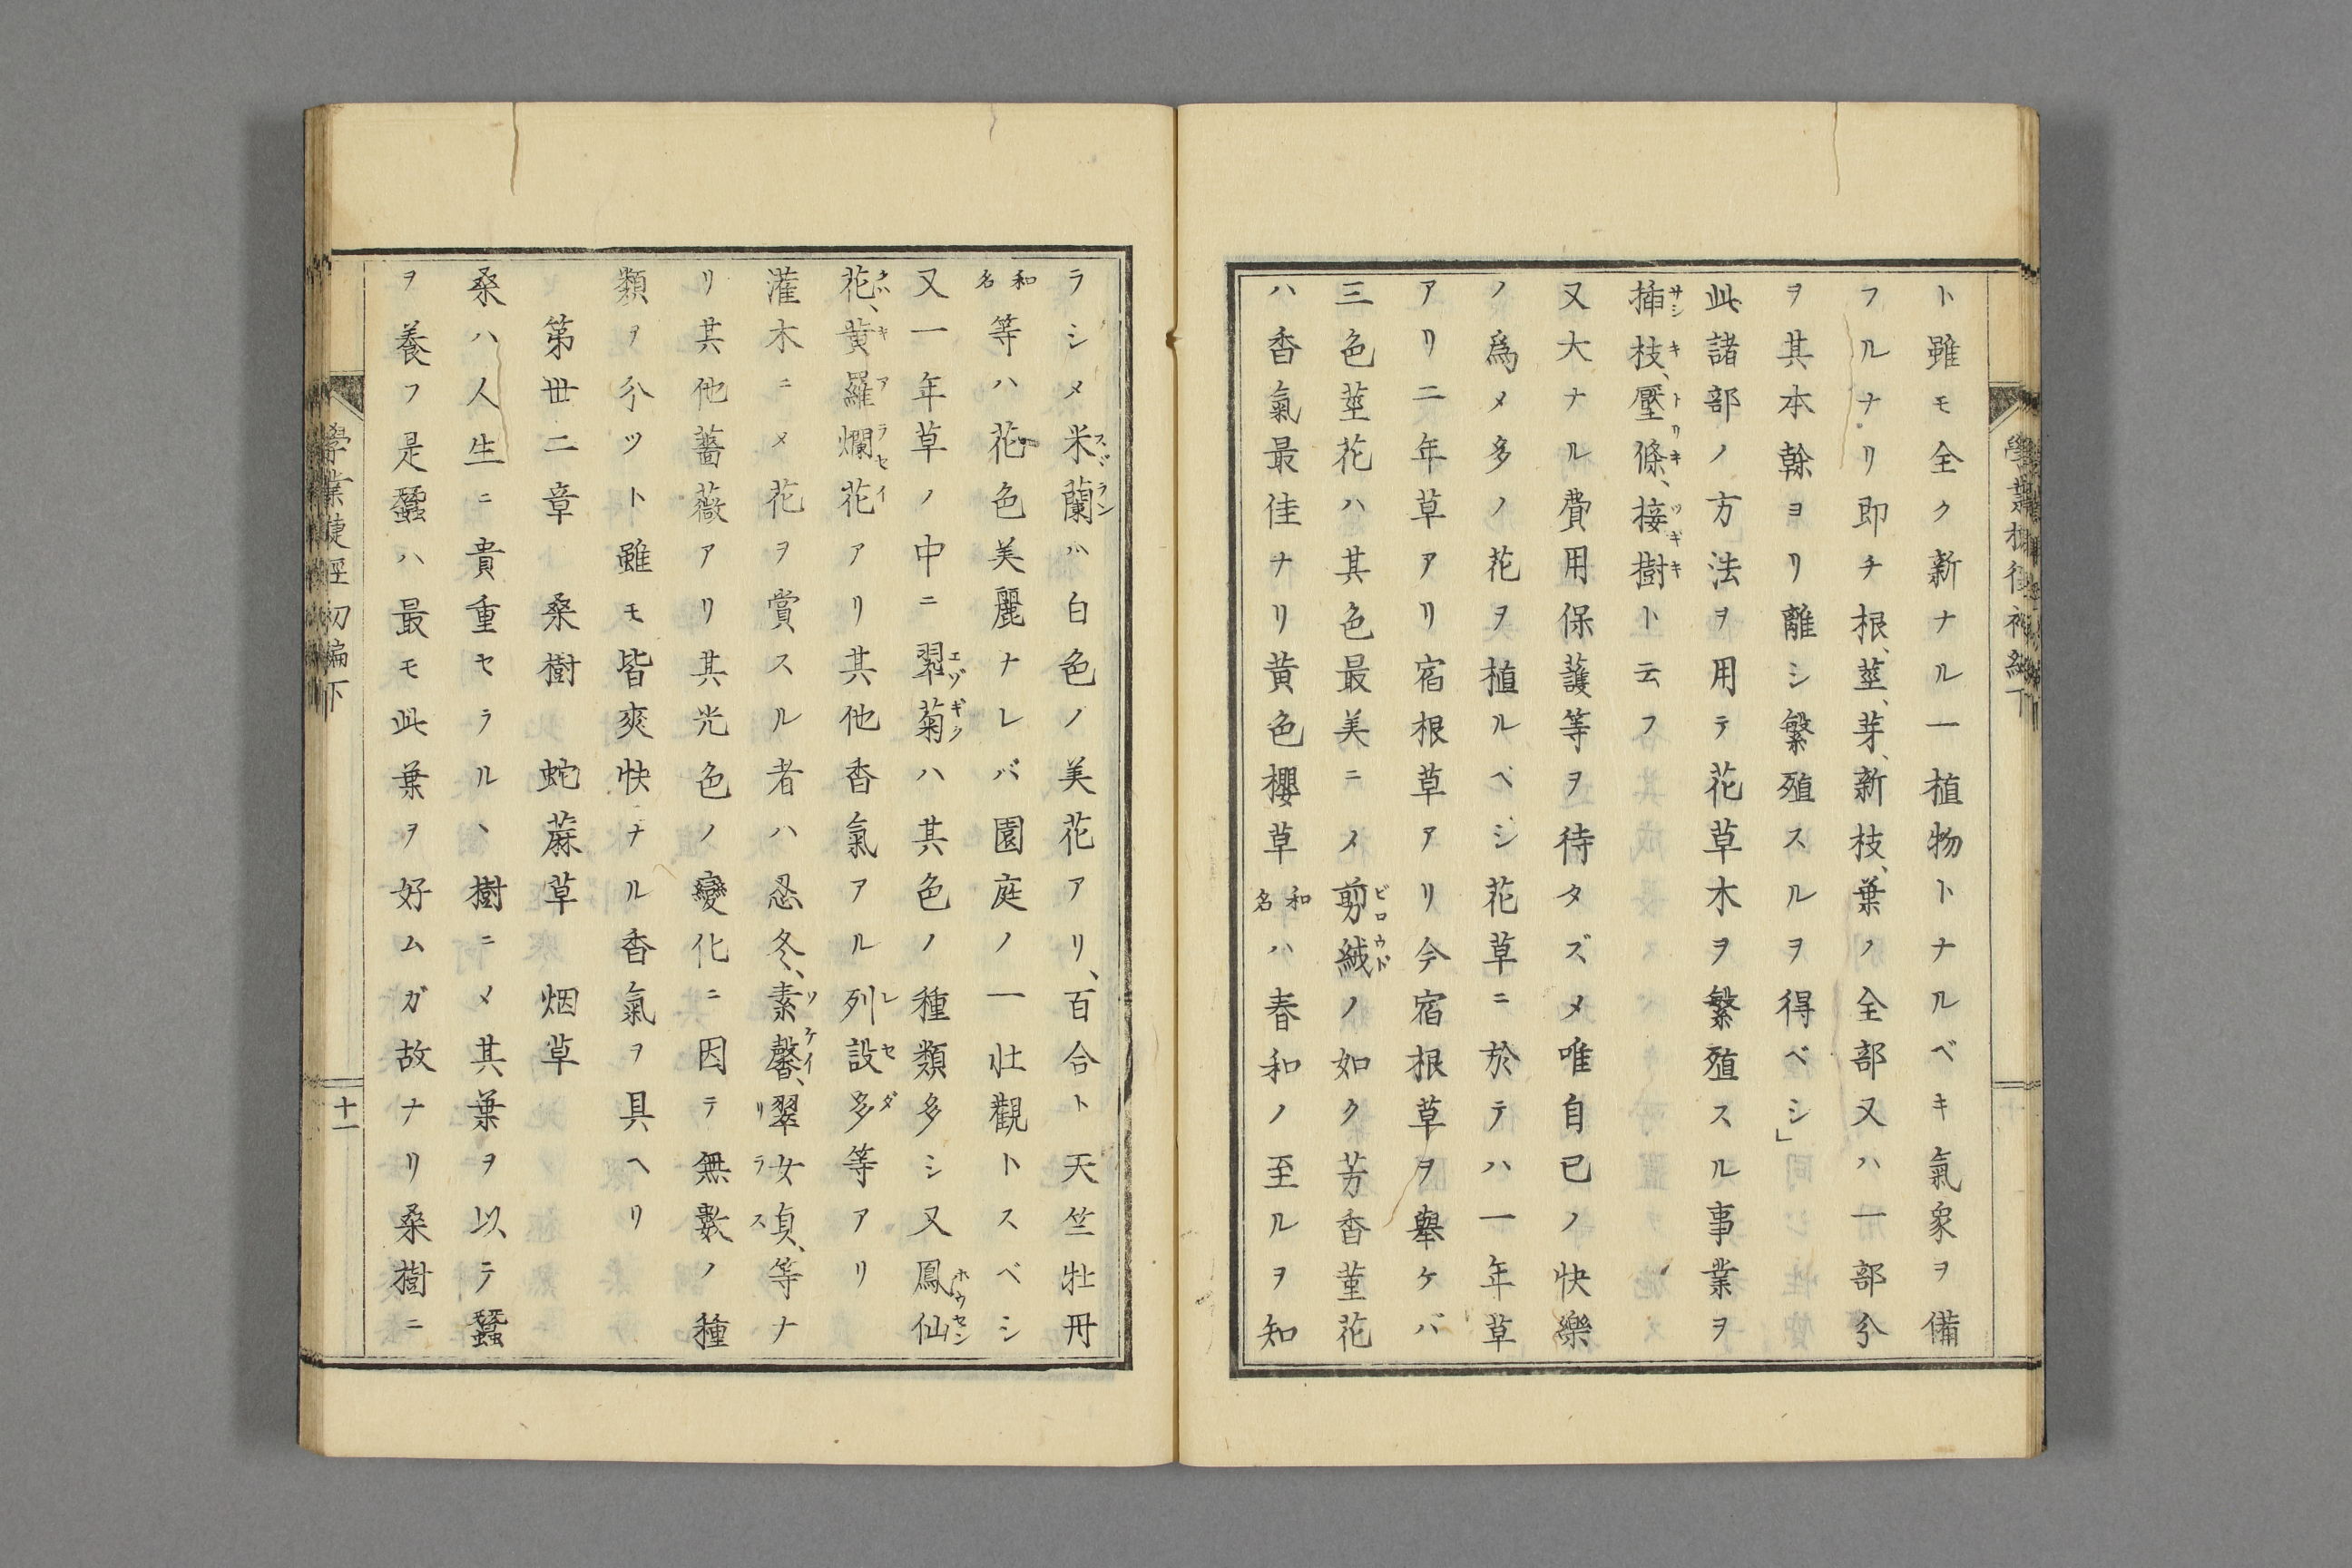 ト雖モ全ク新ナル一植物トナルベキ氣象ヲ備
フルナリ即チ根、莖、芽、新枝、葉ノ全部又ハ一部分
ヲ其本幹ヨリ離シ繁殖スルヲ得ベシ」
此諸部ノ方法ヲ用テ花草木ヲ繁殖スル事業ヲ
揷枝、壓條、接樹ト云フ
サシキ トリキ ツギキ
又大ナル費用保護等ヲ待タズメ唯自已ノ快樂
ノ爲メ多ノ花ヲ植ルベシ花草ニ於テハ一年草
アリ二年草アリ宿根草アリ今宿根草ヲ舉ケバ
三色莖花ハ其色最美ニメ剪絨ノ如ク芳香菫花
ビロウド
ハ香氣最佳ナリ黄色櫻草和名ハ春和ノ至ルヲ知
ラシメ米蘭ハ白色ノ美花アリ、百合ト天竺牡丹
スヾラン
和名等ハ花色美麗ナレバ園庭ノ一壮觀トスベシ
又一年草ノ中ニ翠菊ハ其色ノ種類多シ又鳳仙
エゾギク ホウセン
花、黄羅爛花アリ其他香氣アル列設多等アリ
クハ キアラセイ レセダ
灌木ニメ花ヲ賞スル者ハ忍冬、素馨、翠女貞、等ナ
ソケイ リラス
リ其他薔薇アリ其光色ノ變化ニ因テ無數ノ種
類ヲ分ツト雖モ皆爽快ナル香氣ヲ具ヘリ
第丗二章 桑樹 蛇蔴草 烟草
桑ハ人生ニ貴重セラルヽ樹ニメ其葉ヲ以テ蠶
ヲ養フ是蠶ハ最モ此葉ヲ好ムガ故ナリ桑樹ニ
學業捷徑初編下
十一